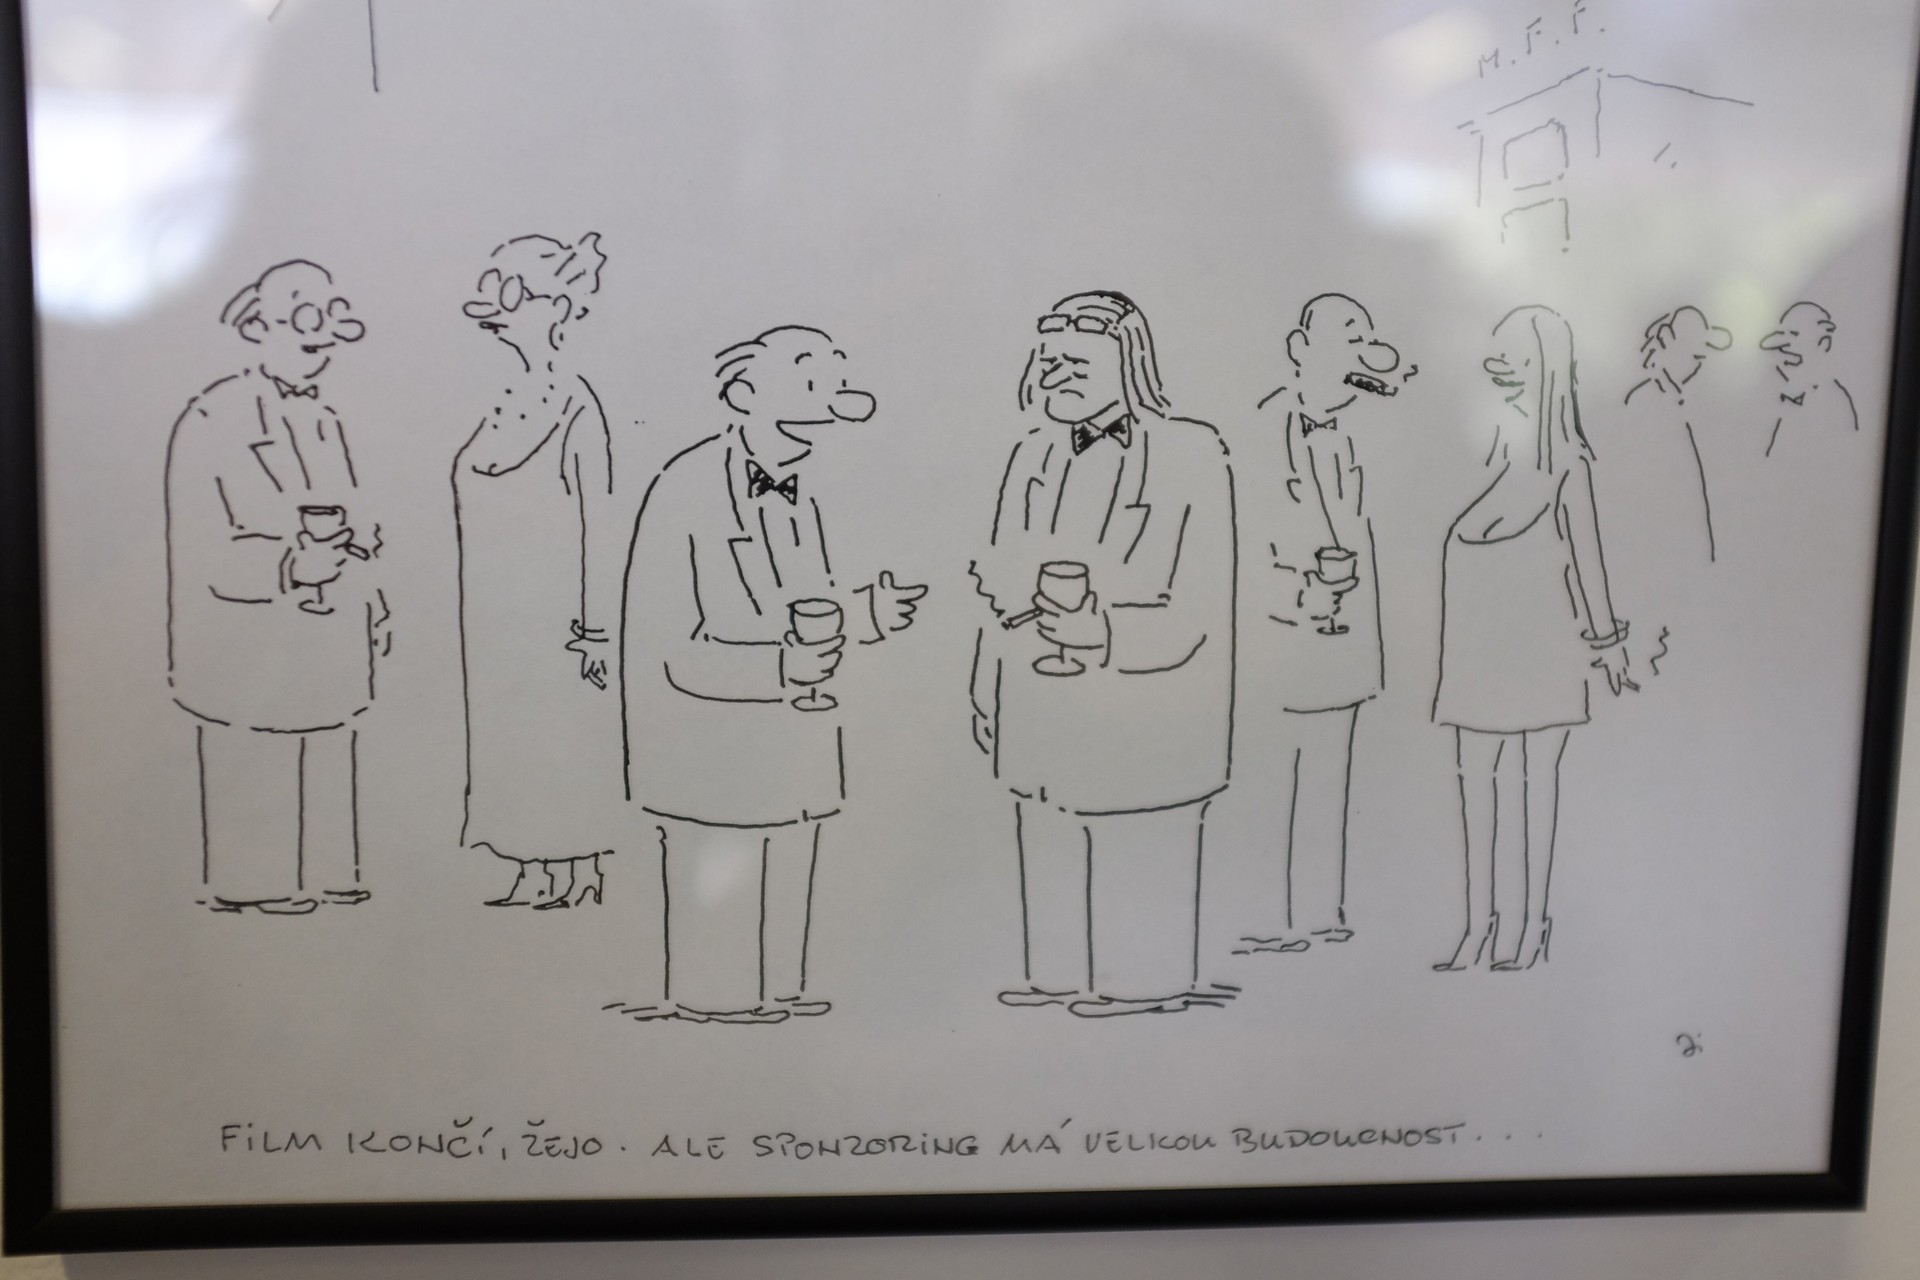 M.F.F.
FiLM KONČÍ, ŽEJO. ALE SPONZORiNG MÁ VELKOU BUDOUCNOST...